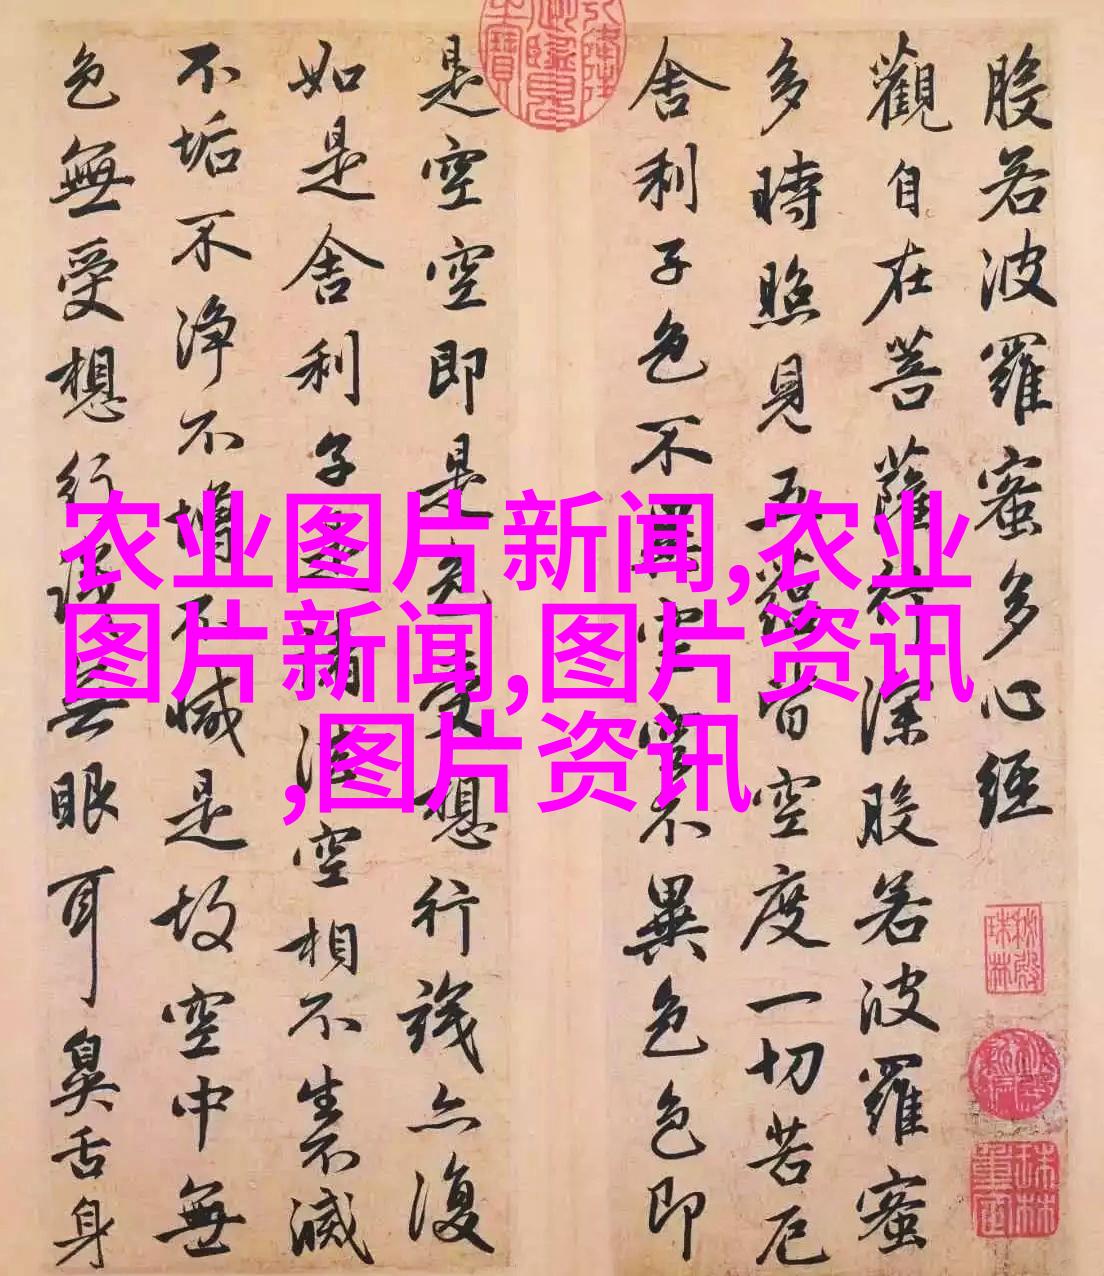 般若波羅蜜多心經
觀自在菩薩行深般若波羅蜜
多時照見五蘊皆空度一切苦厄
舍利子色不異空空不異色色即
是空空即是色受想行識亦復
如是舍利子是諸法空相不生不滅
不垢不淨不增不減是故空中無
色無受想行識無眼耳鼻舌身
农业图片新闻,农业
图片新闻,图片资讯
,图片资讯